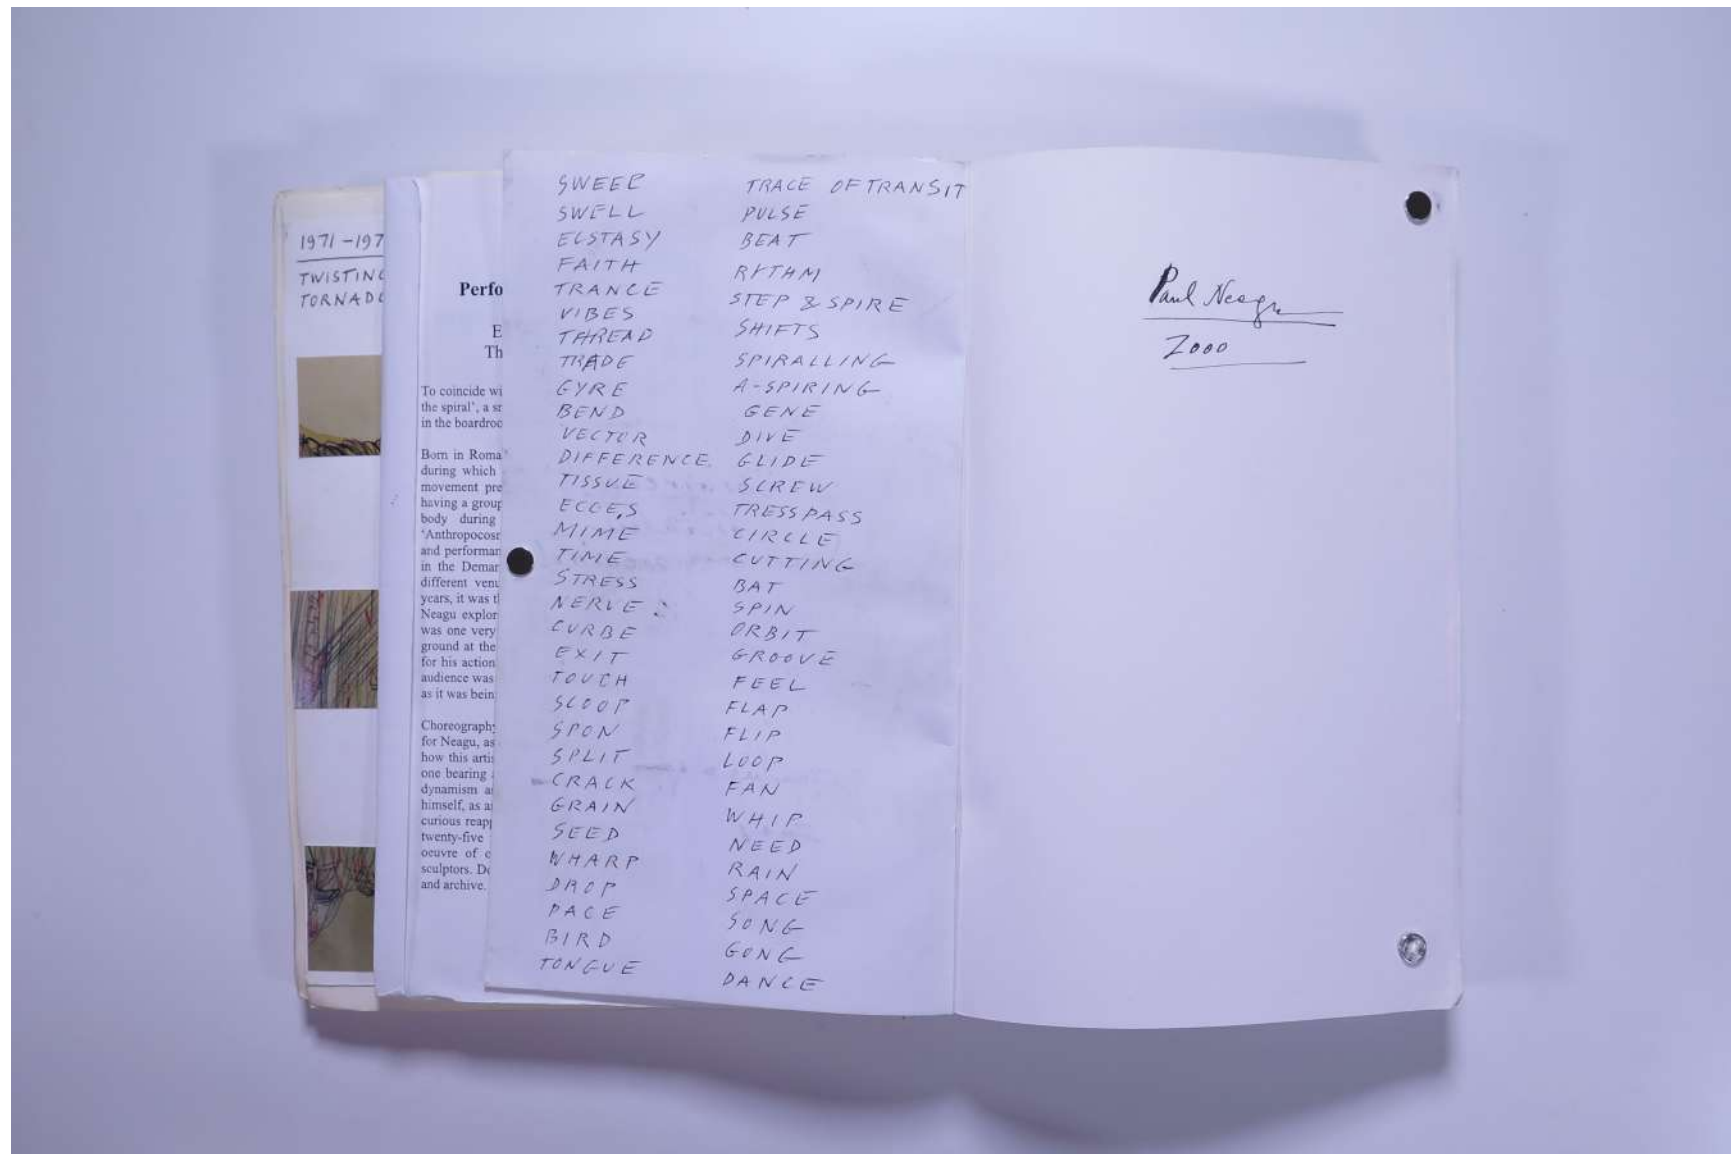 1971-197
TWISTING
TORNADO
Perfo
E
Th
To coincide wi
the spiral', a sr
in the boardroo
Born in Roma
during which
movement pre
having a group
body during
'Anthropocosr
and performan
in the Demar
different venu
years, it was tl
Neagu explor
was one very
ground at the
for his action
audience was
as it was bein
Choreography
for Neagu, as
how this artis
one bearing
dynamism a
himself, as a
curious reapp
twenty-five
oeuvre of c
sculptors. De
and archive.
SWEEP
SWELL
ECSTASY
FAITH
TRANCE
VIBES
THREAD
TRADE
GYRE
BEND
VECTOR
DIFFERENCE
TISSUE
MIME
TIME
STRESS
NERVE
CURBE
EXIT
TOUCH
SCOOP
SPON
SPLIT
CRACK
GRAIN
SEED
WHARP
DROP
PACE
BIRD
TONGUE
TRACE OF TRANSIT
PULSE
BEAT
RYTHM
STEP & SPIRE
SHIFTS
SPIRALLING
A-SPIRING
GENE
DIVE
GLIDE
SCREW
TRESSPASS
CIRCLE
CUTTING
BAT
SPIN
ORBIT
GROOVE
FEEL
FLAP
FLIP
LOOP
FAN
WHIP
NEED
RAIN
SPACE
SONG
GONG
DANCE
Paul Neagu
2000